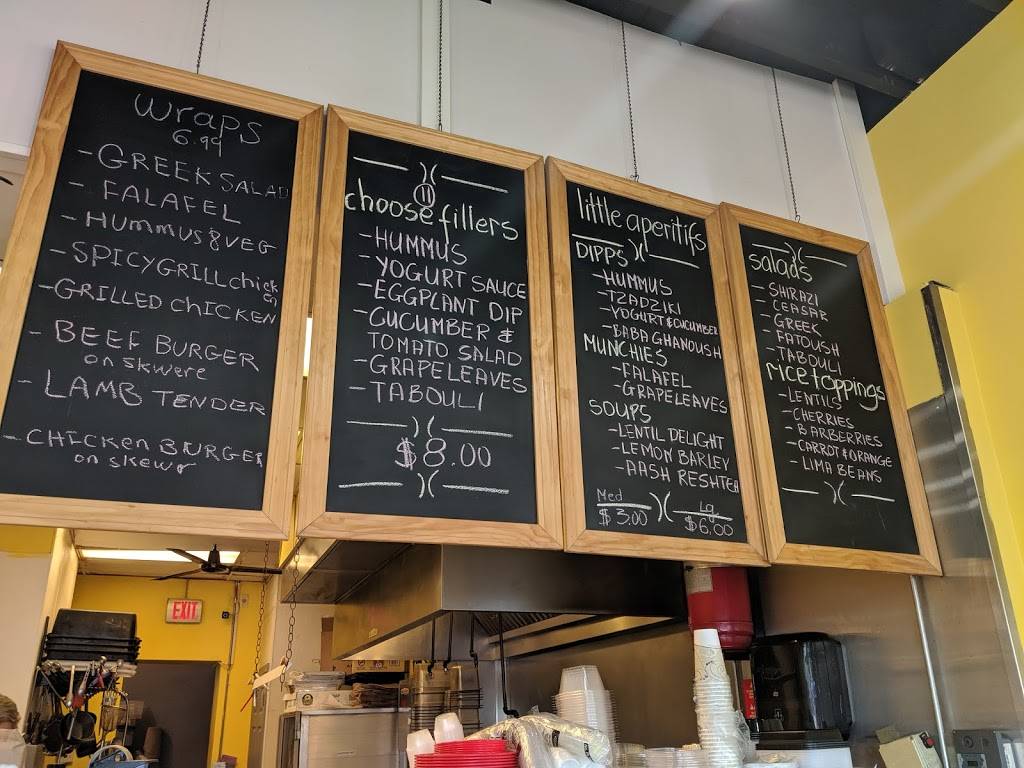 wraps
6.99
- GREEK SALAD
- FALAFEL
- HUMMUS & VEG
- SPICY GRILL chick
en
- GRILLED CHICKEN
- BEEF BURGER
on skwere
- LAMB TENDER
- CHICKEN BURGER
on skewr
choose fillers
- HUMMUS
- YOGURT SAUCE
- EGGPLANT DIP
- CUCUMBER &
TOMATO SALAD
- GRAPELEAVES
- TABOULI
$8.00
little aperitifs
DIPPS
- HUMMUS
- TZADZIKI
- YOGURT & CUCUMBER
- BABAGHANOUSH
MUNCHIES
- FALAFEL
- GRAPELEAVES
SOUPS
- LENTIL DELIGHT
- LEMON BARLEY
- AASH RESHTEH
Med Lg
$3.00 $6.00
salads
- SHIRAZI
- CEASAR
- GREEK
- FATOUSH
- TABOULI
rice toppings
- LENTILS
- CHERRIES
- BARBERRIES
- CARROT & ORANGE
- LIMA BEANS
EXIT